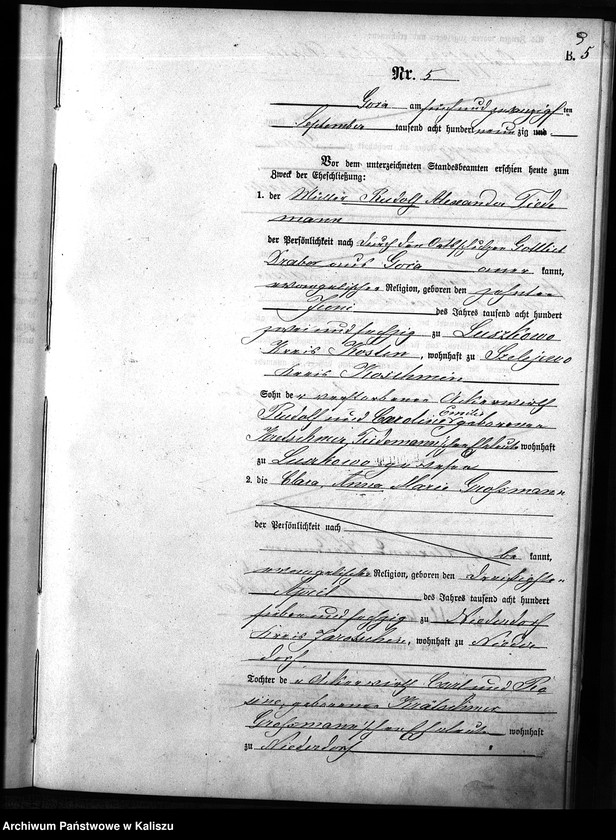 B. 5
Nr. 5
Gora am sechsundzwanzigsten
September tausend acht hundert neunzig und
Vor dem unterzeichneten Standesbeamten erschien heute zum
Zweck der Eheschließung:
1. der Müller Rudolf Alexander Tiede
mann
der Persönlichkeit nach durch den Ortsschulzen Gottlieb
aus Gora aner kannt,
evangelischer Religion, geboren den zehnten
Juni des Jahres tausend acht hundert
zwei und sechzig zu Luszkowo
Kreis Kosten, wohnhaft zu
Kreis Koschmin
Sohn der verstorbenen Ackerwirth
Rudolf und Caroline Emilie geborenen
Kretschmer, Tiedemann'schen Eheleute wohnhaft
zu Luszkowo gewesen
2. die Clara, Anna Marie Grossmann
der Persönlichkeit nach
be kannt,
evangelischer Religion, geboren den dreißigsten
April des Jahres tausend acht hundert
sieben und sechzig zu Niederdorf
Kreis Jarotschin, wohnhaft zu Nieder
dorf
Tochter der Ackerwirth Carl und Ro
sine, geborenen
Grossmann'schen Eheleute wohnhaft
zu Niederdorf
Archiwum Państwowe w Kaliszu